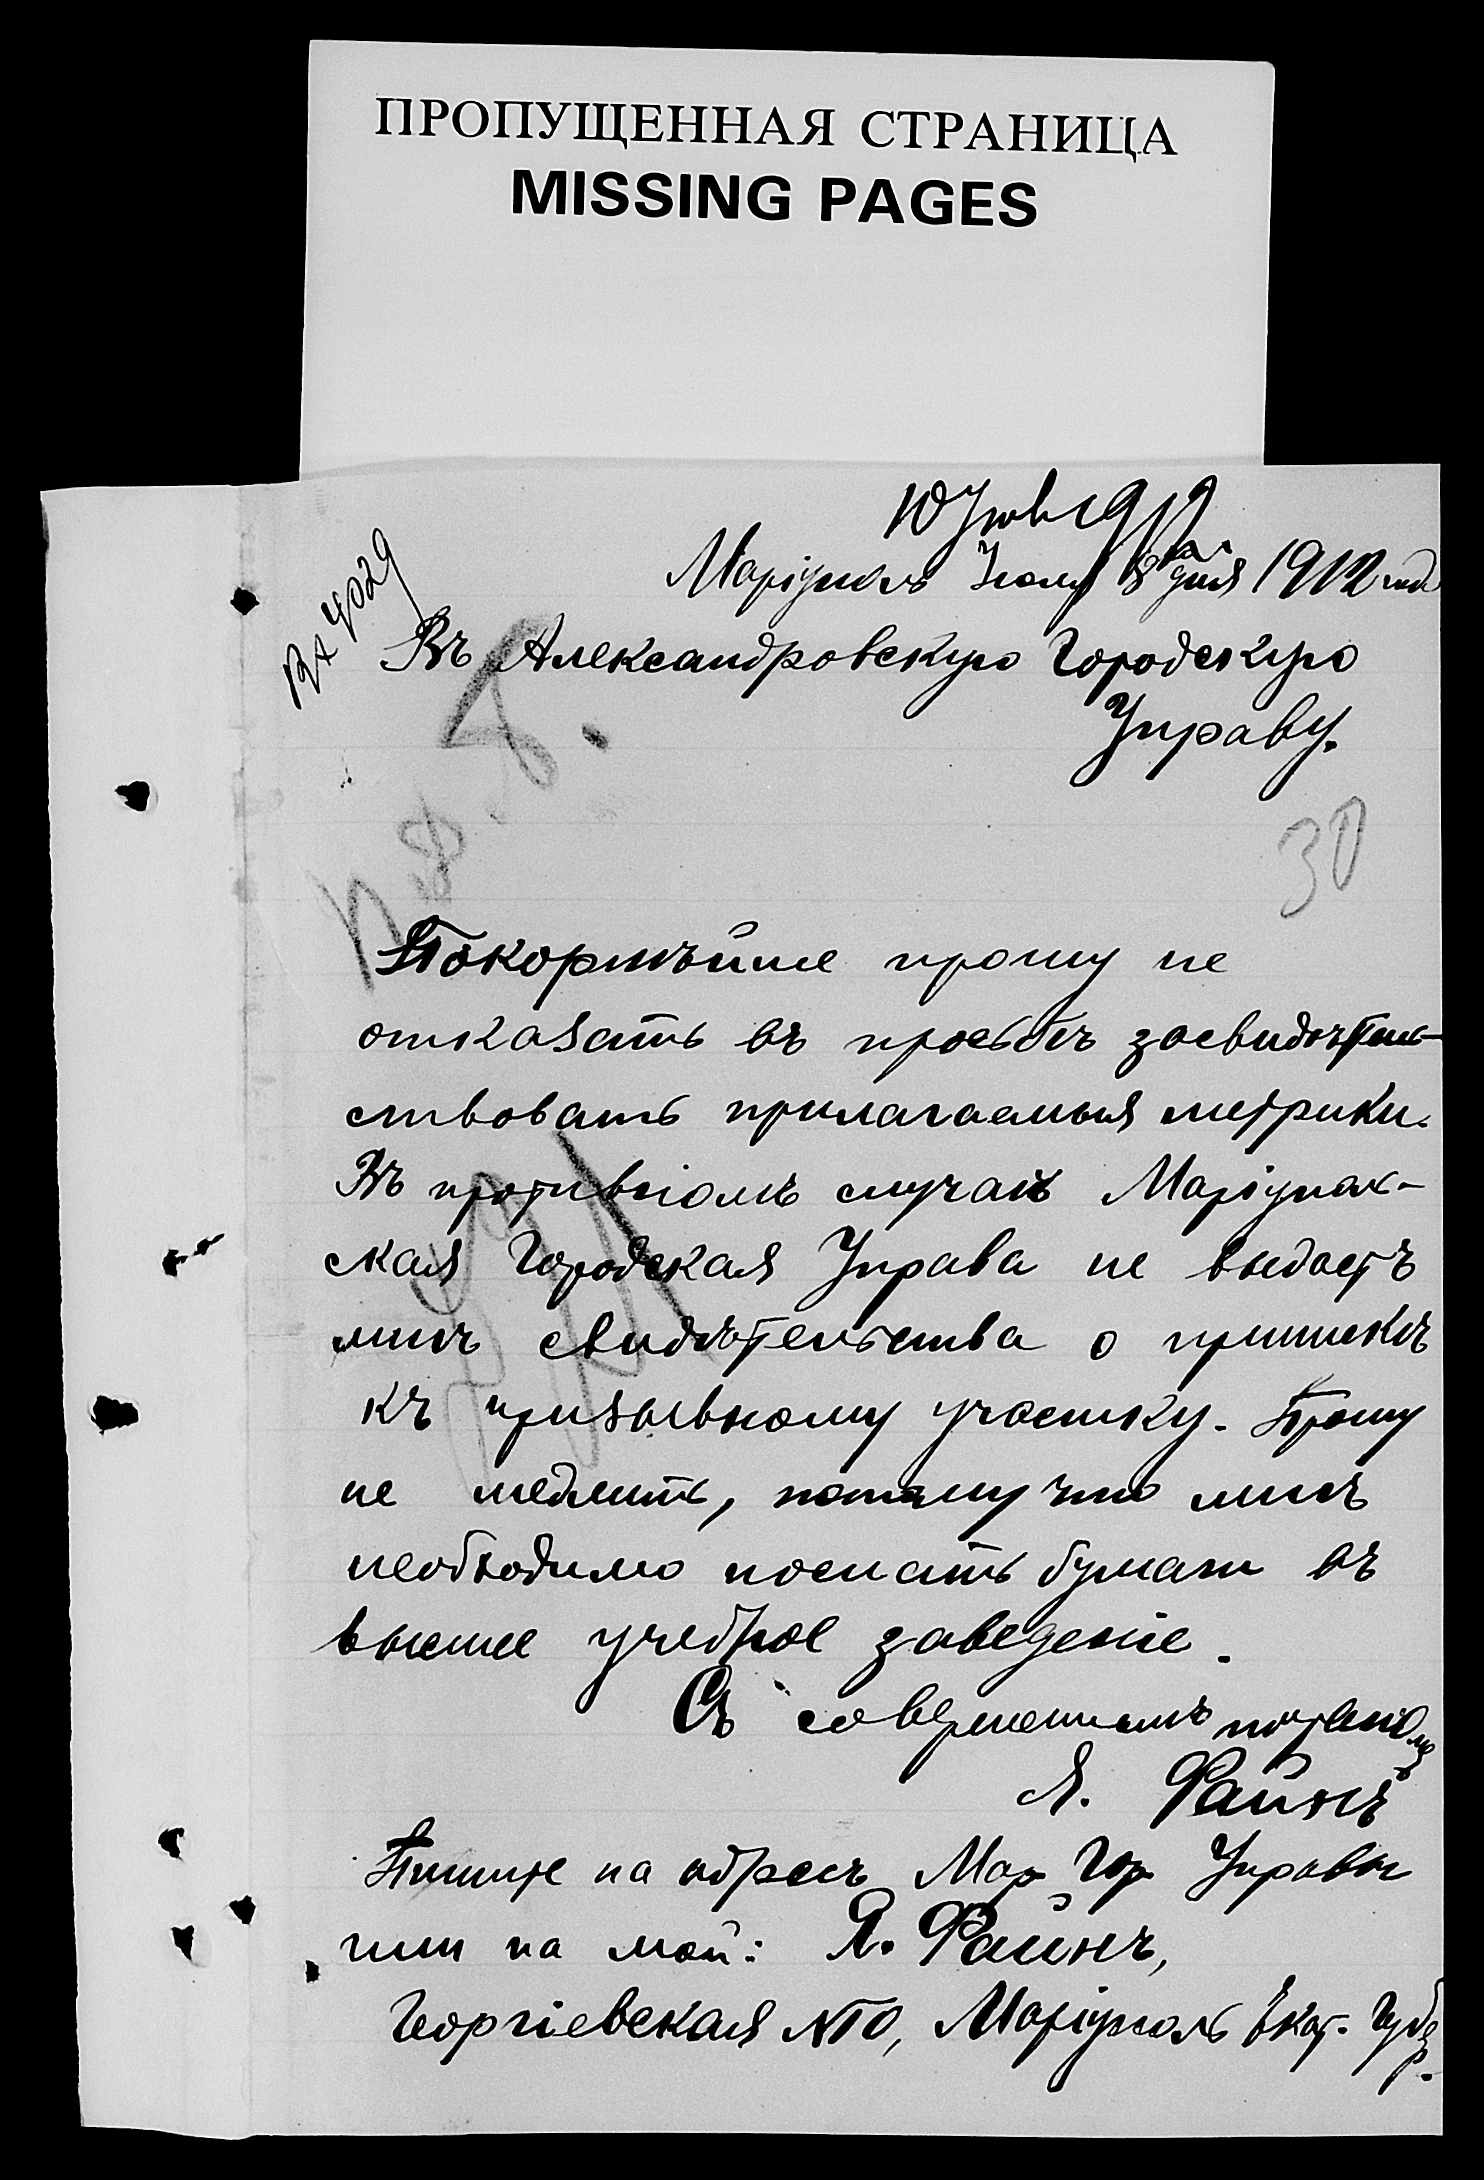 ПРОПУЩЕННАЯ СТРАНИЦА
MISSING PAGES
Вх 4029
Маріуполь 8 дня 1912 года
Въ Александровскую Городскую
Управу.
30
Покорнѣйше прошу не
отказать въ просьбѣ засвидѣтель-
ствовать прилагаемыя метрики.
Въ противномъ случаѣ Маріуполь-
ская Городская Управа не выдастъ
мнѣ свидѣтельства о припискѣ
къ призывному участку. Прошу
не медлить, потому что мнѣ
необходимо послать бумаги въ
высшее учебное заведеніе.
Съ совершеннымъ почтеніемъ
Я. Файнъ
Пишите на адресъ Мар Гор Управы
или на мой: Я. Файнъ,
Георгіевская №10, Маріуполь Екат. Губер.